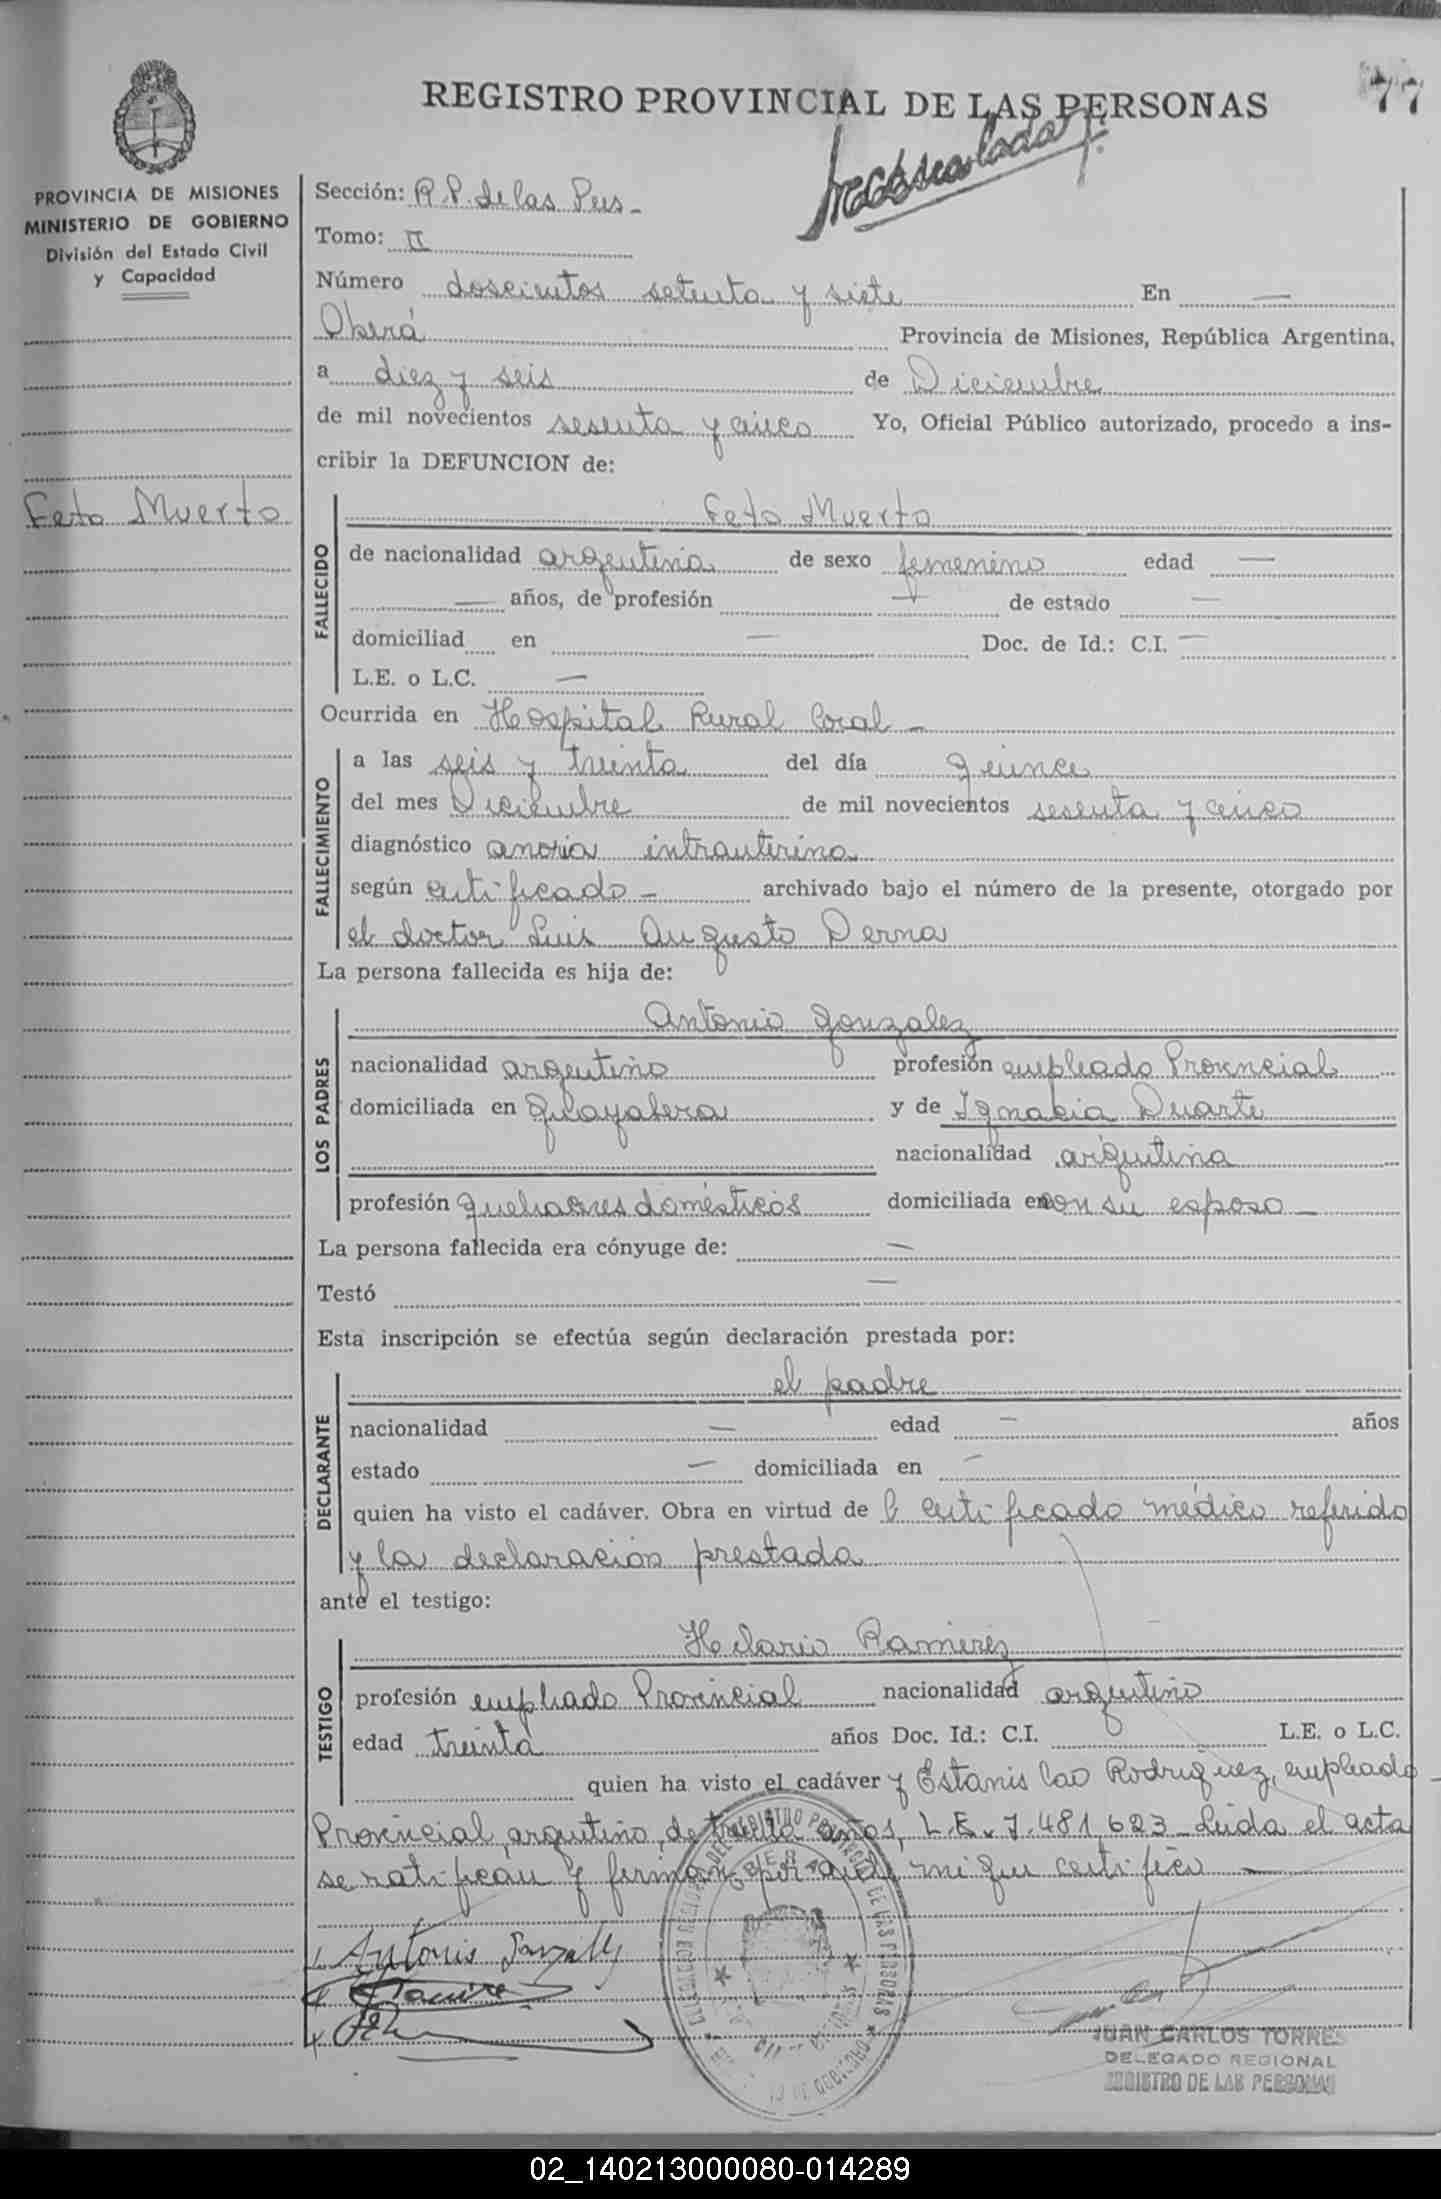 REGISTRO PROVINCIAL DE LAS PERSONAS
77
PROVINCIA DE MISIONES
MINISTERIO DE GOBIERNO
División del Estado Civil
y Capacidad
Sección: R.P. de las Pers-
Tomo: II
Número doscientos setenta y siete En —
Oberá Provincia de Misiones, República Argentina,
a diez y seis de Diciembre
de mil novecientos sesenta y cinco Yo, Oficial Público autorizado, procedo a ins-
cribir la DEFUNCION de:
Feto Muerto
FALLECIDO
Feto Muerto
de nacionalidad argentina de sexo femenino edad —
— años, de profesión — de estado —
domiciliad en — Doc. de Id.: C.I. —
L.E. o L.C. —
Ocurrida en Hospital Rural local -
FALLECIMIENTO
a las seis y treinta del día quince
del mes Diciembre de mil novecientos sesenta y cinco
diagnóstico anoxia intrauterina
según certificado - archivado bajo el número de la presente, otorgado por
el doctor Luis Augusto Derna
La persona fallecida es hija de:
LOS PADRES
Antonio Gonzalez
nacionalidad argentino profesión empleado Provincial
domiciliada en Guayabera y de Ignacia Duarte
nacionalidad argentina
profesión quehaceres domésticos domiciliada en con su esposo -
La persona fallecida era cónyuge de: —
Testó —
Esta inscripción se efectúa según declaración prestada por:
DECLARANTE
el padre
nacionalidad — edad — años
estado — domiciliada en —
quien ha visto el cadáver. Obra en virtud de l certificado médico referido
y la declaración prestada
ante el testigo:
TESTIGO
Hilario Ramirez
profesión empleado Provincial nacionalidad argentino
edad treinta años Doc. Id.: C.I. L.E. o L.C.
quien ha visto el cadáver y Estanislao Rodriguez, empleado
Provincial, argentino, de treinta años, L.E. 7.481.623 - Leida el acta
se ratifican y firman por ante mi que certifico —
Antonio Gonzalez
JUAN CARLOS TORRES
DELEGADO REGIONAL
REGISTRO DE LAS PERSONAS
02_140213000080-014289